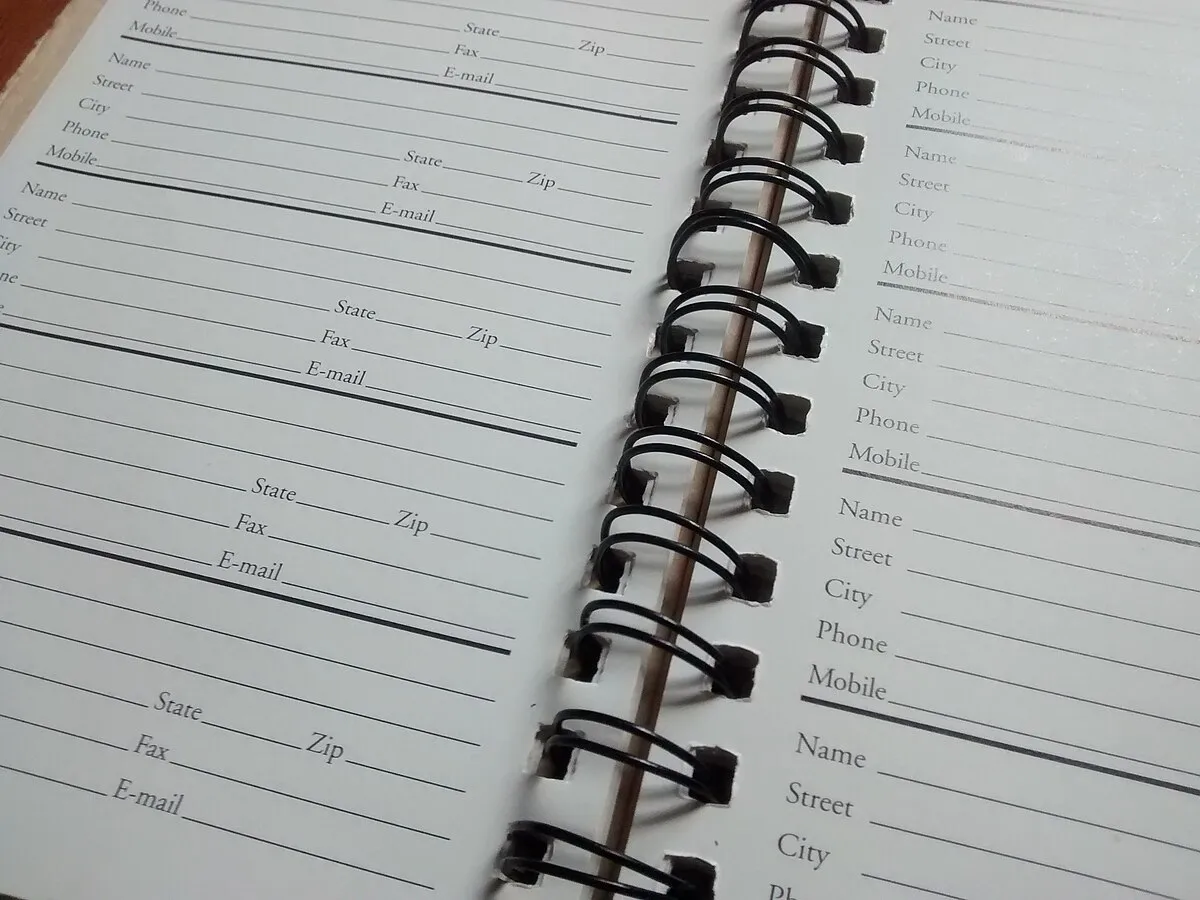 State Zip
Phone Fax
Mobile E-mail
Name
Street
City State Zip
Phone Fax
Mobile E-mail
Name
Street
ity State Zip
ne Fax
E-mail
State Zip
Fax
E-mail
State Zip
Fax
E-mail
Name
Street
City
Phone
Mobile
Name
Street
City
Phone
Mobile
Name
Street
City
Phone
Mobile
Name
Street
City
Phone
Mobile
Name
Street
City
Ph